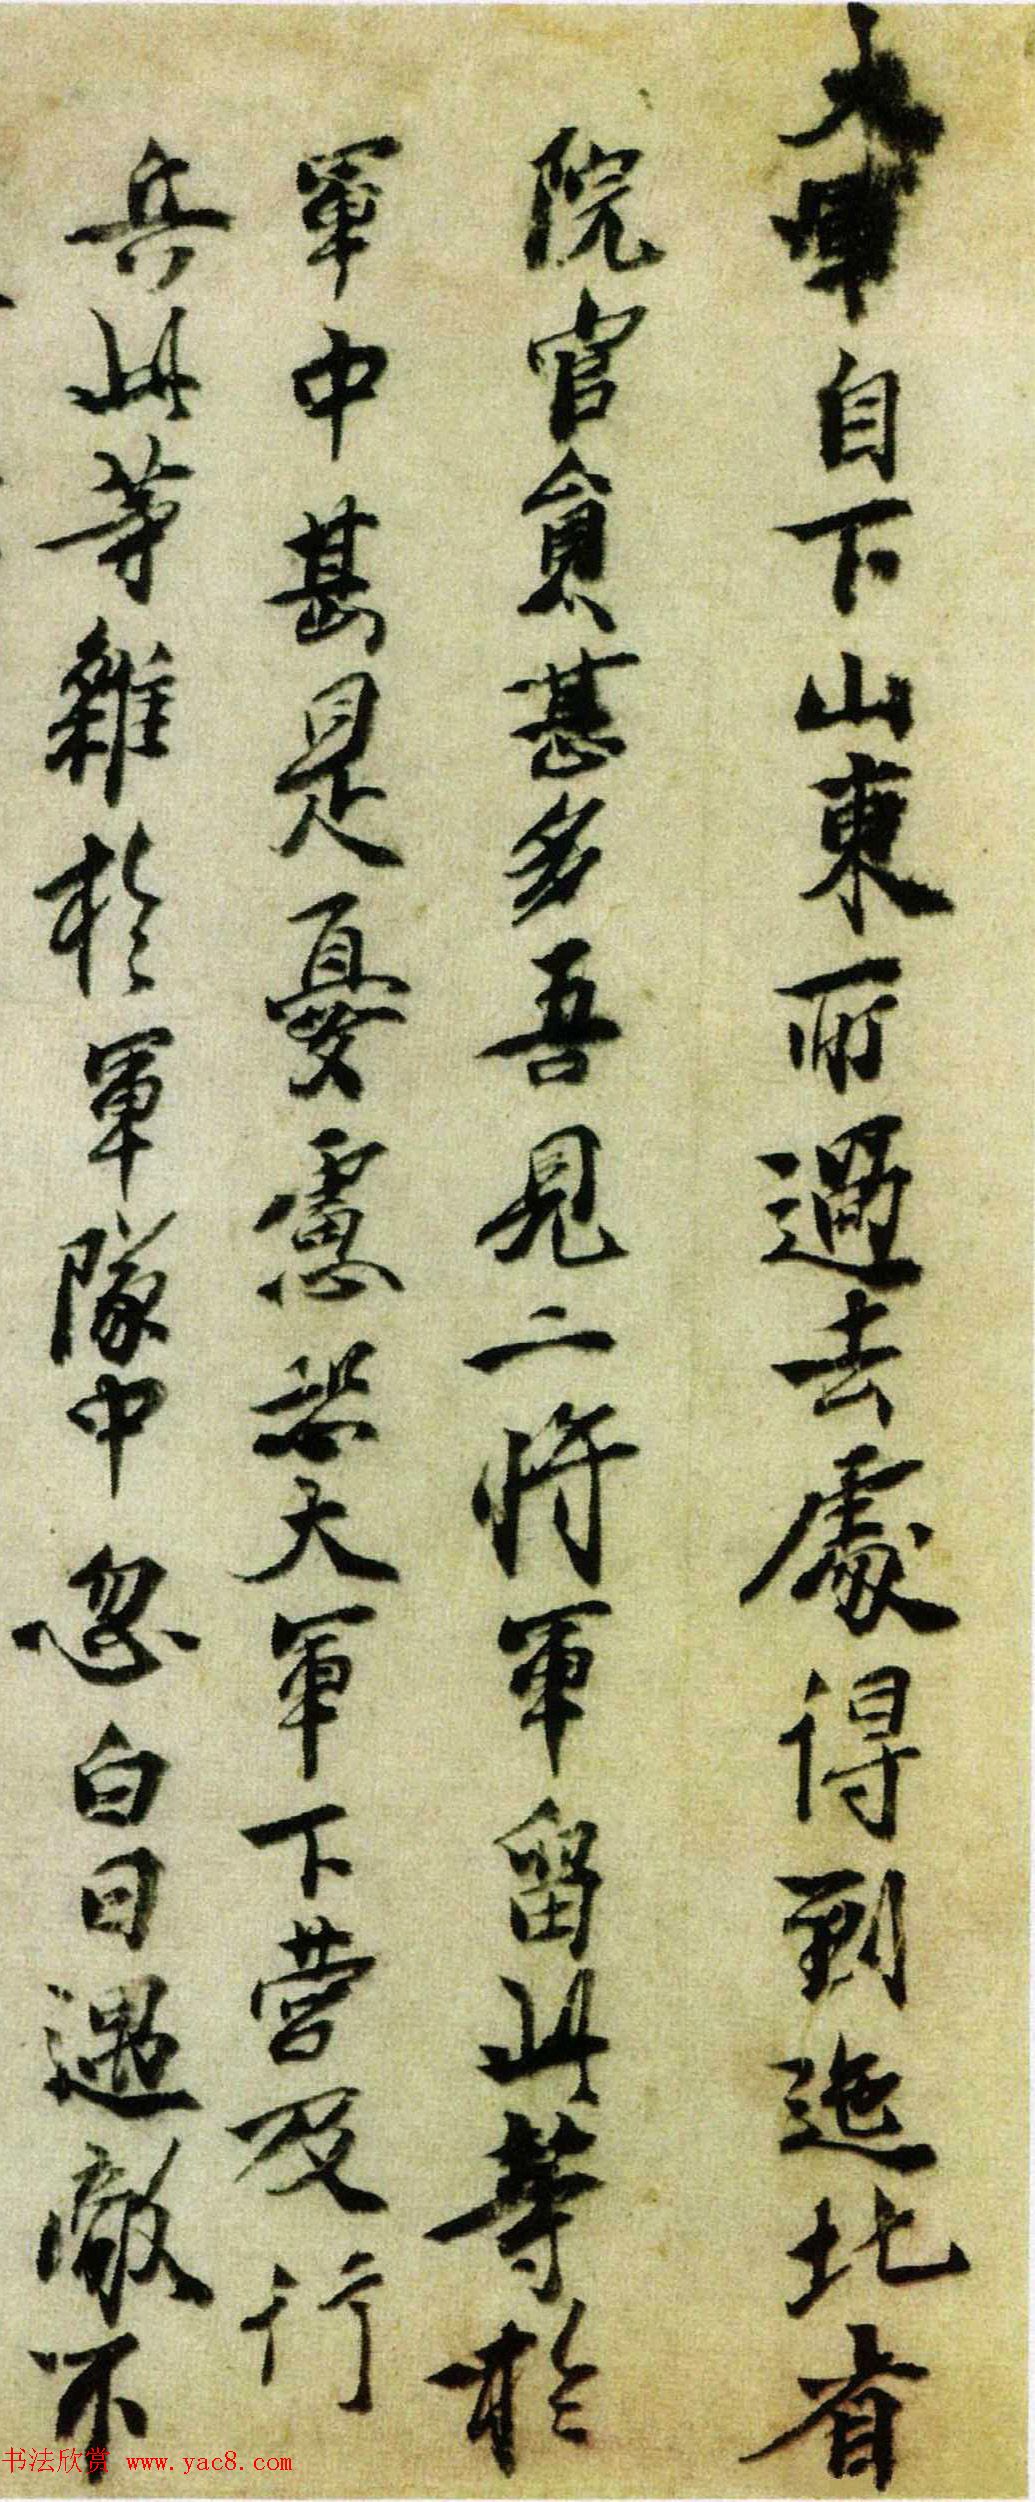 大軍自下山東所過去處得到迤北省
院官員甚多吾見二将軍留此等於
軍中甚是憂慮恐大軍下營及行
兵此等雜於軍隊中忽白日遇敵不
书法欣赏 www.yac8.com